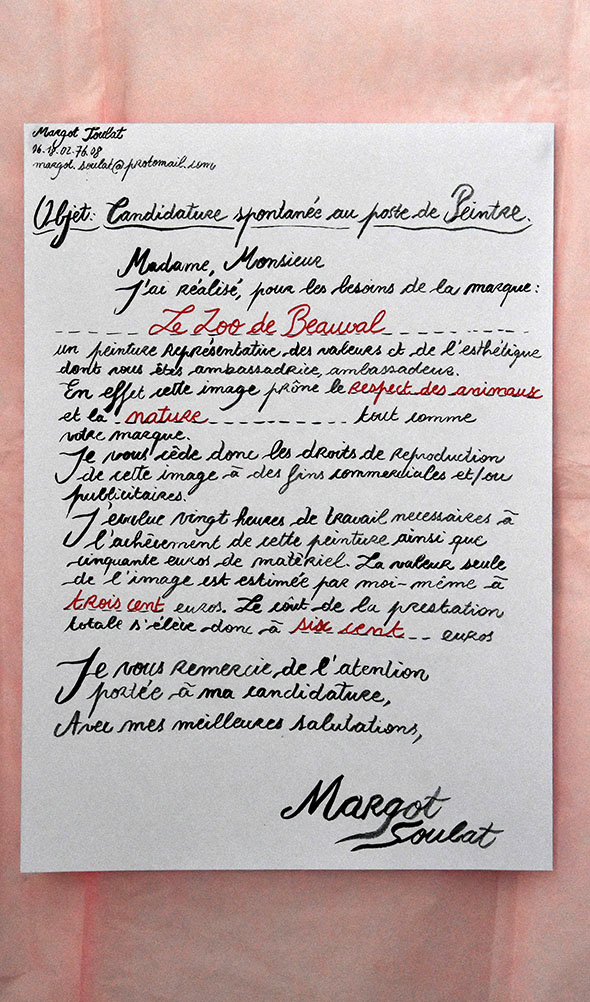 Margot Soulat
06.18.02.76.08
margot.soulat@protomail.com
Objet: Candidature spontanée au poste de Peintre.
Madame, Monsieur
J'ai réalisé, pour les besoins de la marque:
Le Zoo de Beauval
un peinture représentative des valeurs et de l'esthétique
dont vous êtes ambassadrice, ambassadeur.
En effet cette image prône le respect des animaux
et la nature tout comme
votre marque.
Je vous cède donc les droits de reproduction
de cette image à des fins commerciales et/ou
publicitaires.
J'évalue vingt heures de travail necessaires à
l'achèvement de cette peinture ainsi que
cinquante euros de matèriel. La valeur seule
de l'image est estimée par moi-même à
trois cent euros. Le coût de la prestation
totale s'élève donc à six cent euros
Je vous remercie de l'attention
portée à ma candidature,
Avec mes meilleures salutations,
Margot
Soulat